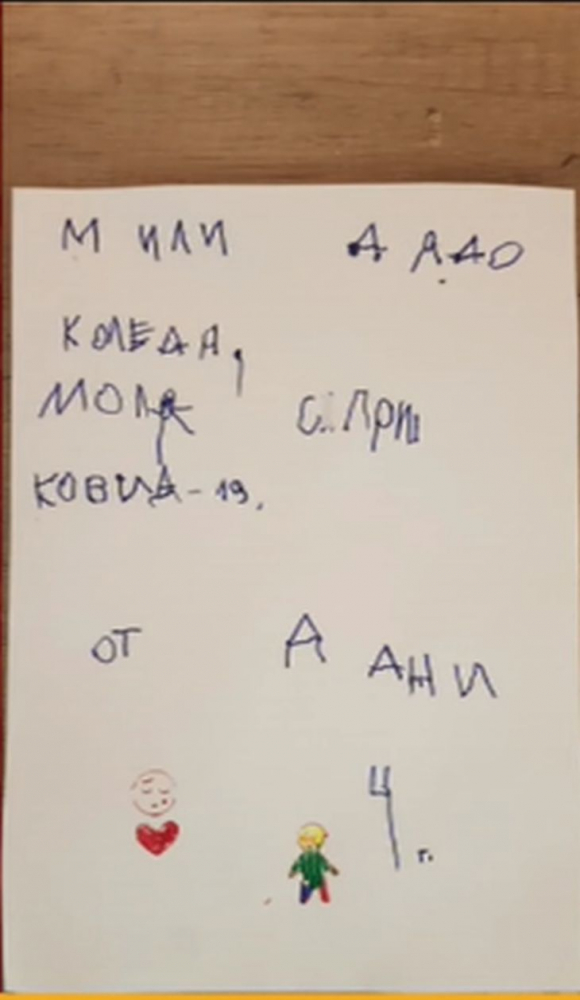 МИЛИ ДЯДО
КОЛЕДА,
МОЛЯ СПРИ
КОВИД-19.
ОТ ДАНИ
4 г.